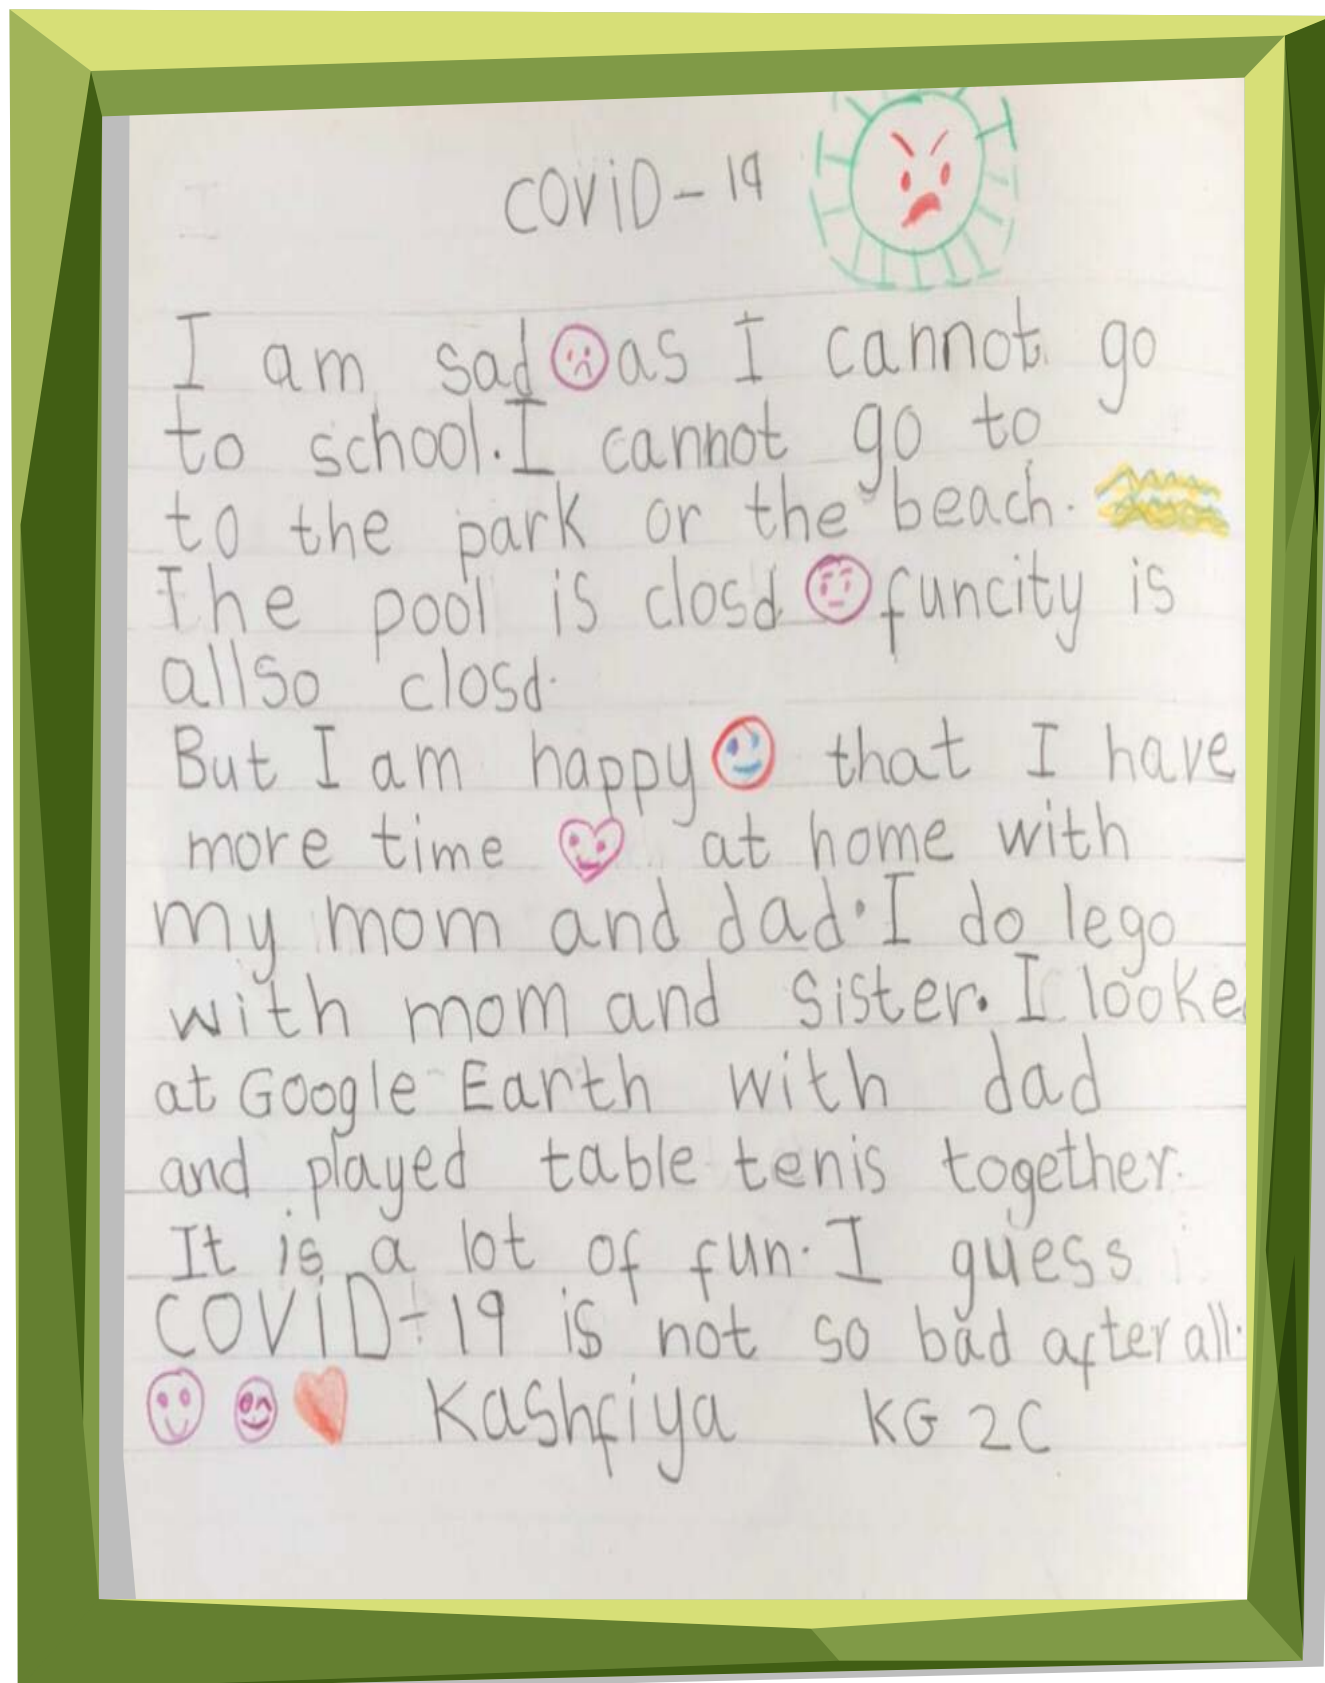 COViD-19
I am sad as I cannot go
to school. I cannot go to
to the park or the beach.
The pool is closd funcity is
allso closd.
But I am happy that I have
more time at home with
my mom and dad. I do lego
with mom and sister. I looke
at Google Earth with dad
and played table tenis together.
It is a lot of fun. I guess
COViD-19 is not so bad after all.
Kashfiya KG 2C